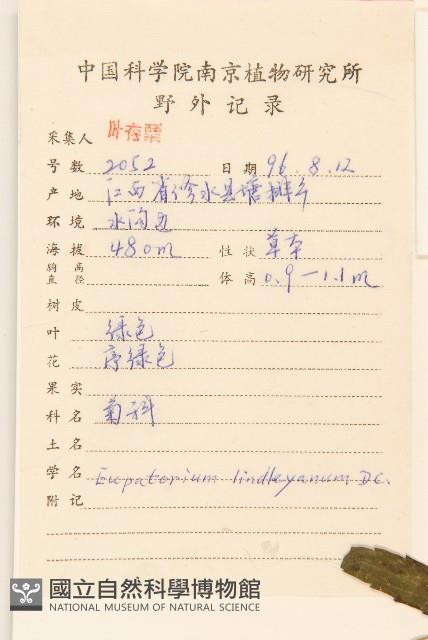 中国科学院南京植物研究所
野外记录
采集人
号数 2052 日期 96.8.12
产地 江西省修水县塘排乡
环境 水沟边
海拔 480m 性状 草本
胸高直径 体高 0.9—1.1m
树皮
叶 绿色
花 序绿色
果实
科名 菊科
土名
学名 Eupatorium lindleyanum DC.
附记
國立自然科學博物館
NATIONAL MUSEUM OF NATURAL SCIENCE